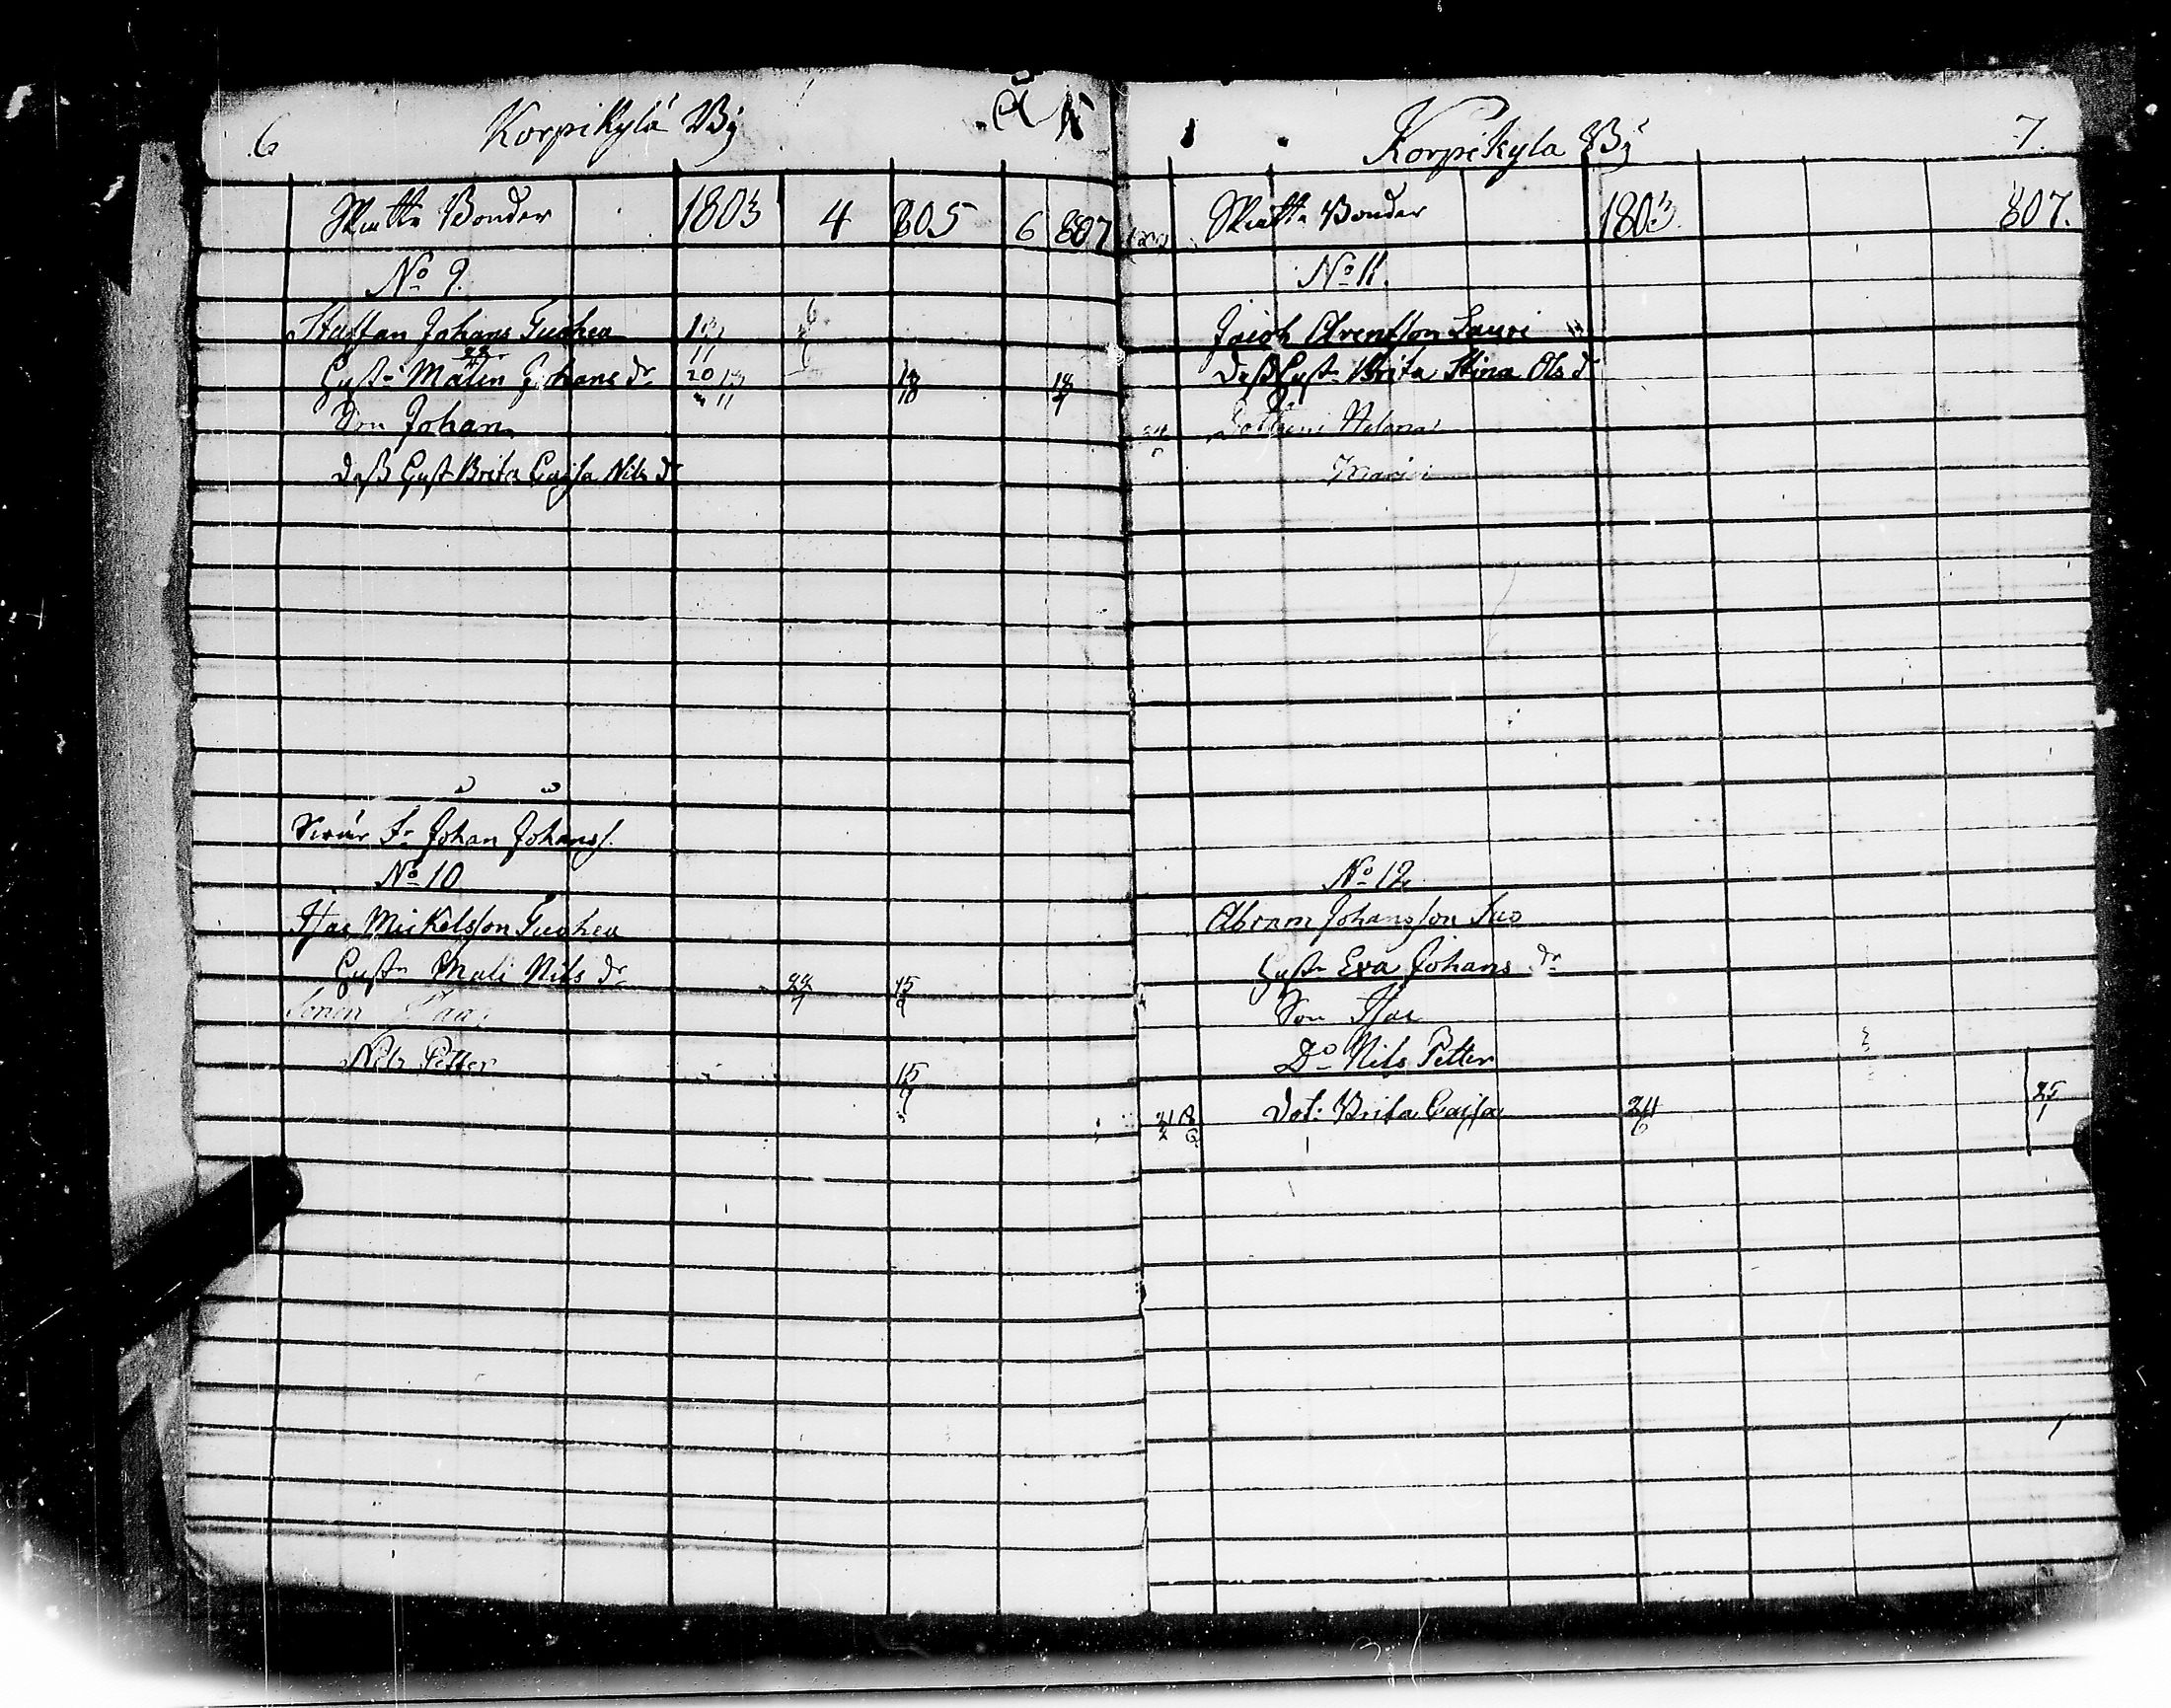 6 Korpikylä By
Skatte Bönder 1803 4 805 6 807
No 9.
Staffan Johans Tuohea 13/11
Hust. Malin Johans dr 20 13/11 18/10 18/4
Son Johan
Dess Hust Brita Cajsa Nils dr
Svär Fr Johan Johanss.
No 10
Isac Mickelsson Tuohea
Hustr Mali Nils dr 22/4 15/9
Sonen Isac
Nils Petter 15/9
Korpikyla By 7.
Skatte Bönder 1803 807.
No 11.
Arentsson Lauri
Dess Hustr Brita Stina Ols dr
Helena
Maria
No 12.
Abram Johansson Suo
Hustr Eva Johans dr
Son Isac
Do Nils Petter
Dot: Brita Cajsa 24/6 25/1